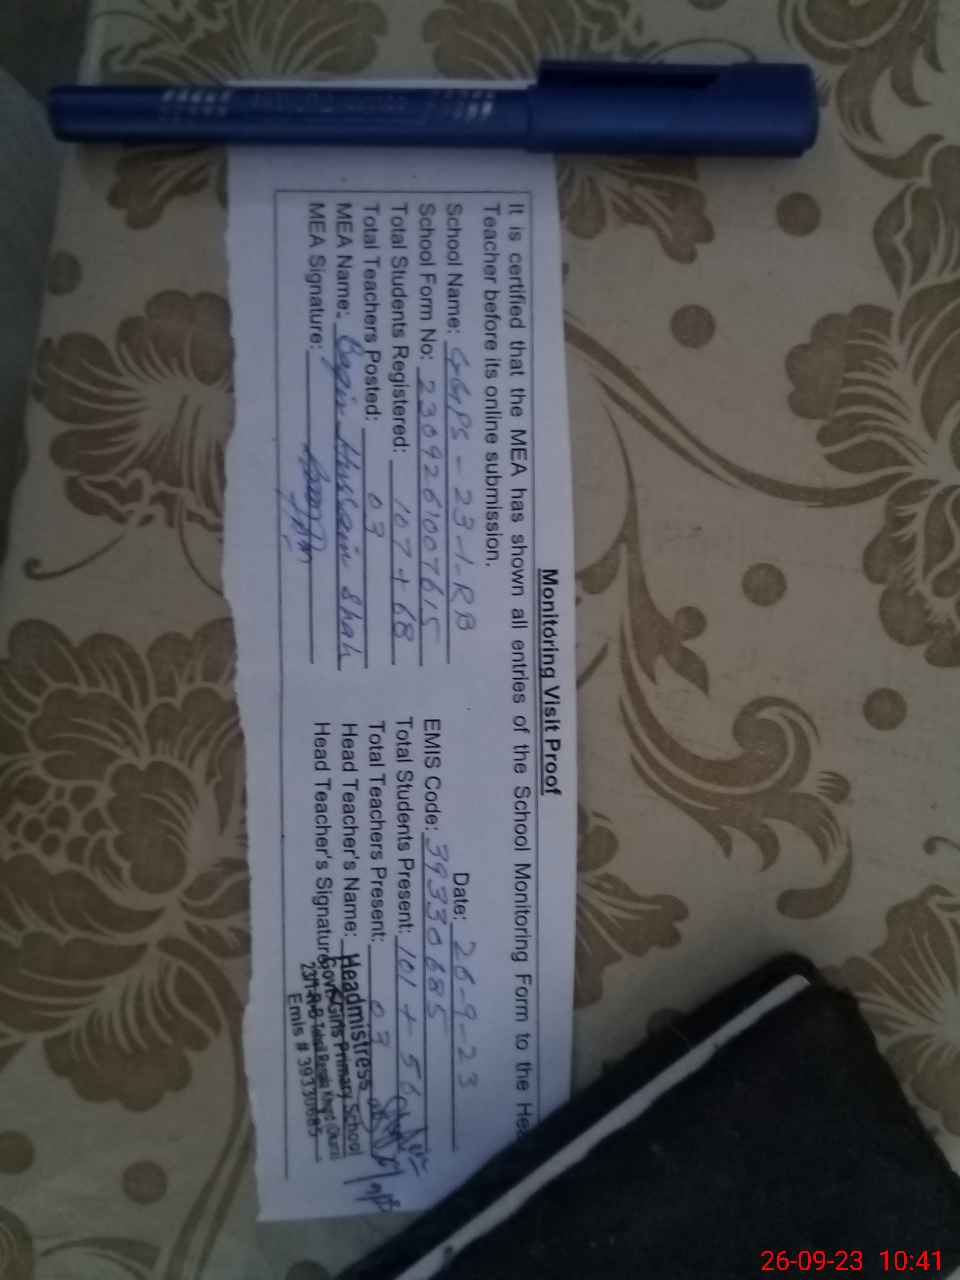 Monitoring Visit Proof
It is certified that the MEA has shown all entries of the School Monitoring Form to the Hea
Teacher before its online submission.
Date: 26-9-23
School Name: GGPS - 23-1-RB
School Form No: 2309261007615 EMIS Code: 39330685
Total Students Registered: 107 + 68 Total Students Present: 101 + 56
Total Teachers Posted: 03 Total Teachers Present: 03
MEA Name: Hussain Shah Head Teacher's Name: Headmistress
MEA Signature: Head Teacher's Signature
Govt. Girls Primary School
Emis # 39330685
26-09-23 10:41